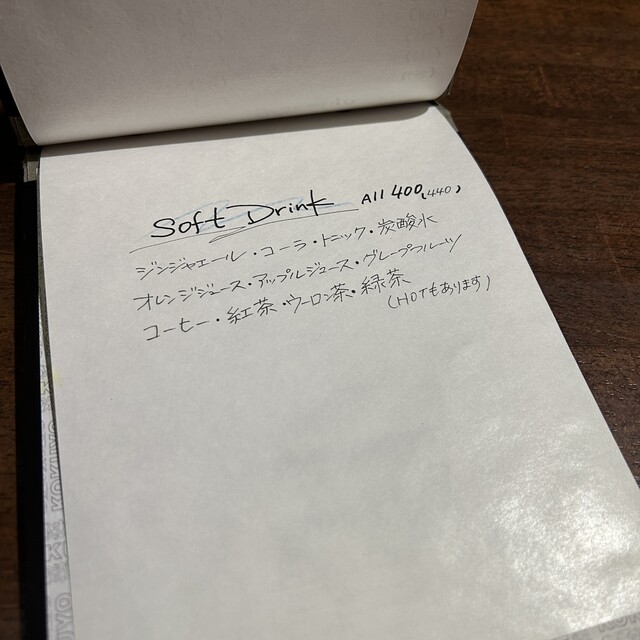 Soft Drink All 400(440)
ジンジャエール・コーラ・トニック・炭酸水
オレンジジュース・アップルジュース・グレープフルーツ
コーヒー・紅茶・ウーロン茶・緑茶
(HOTもあります)
KOKUYO